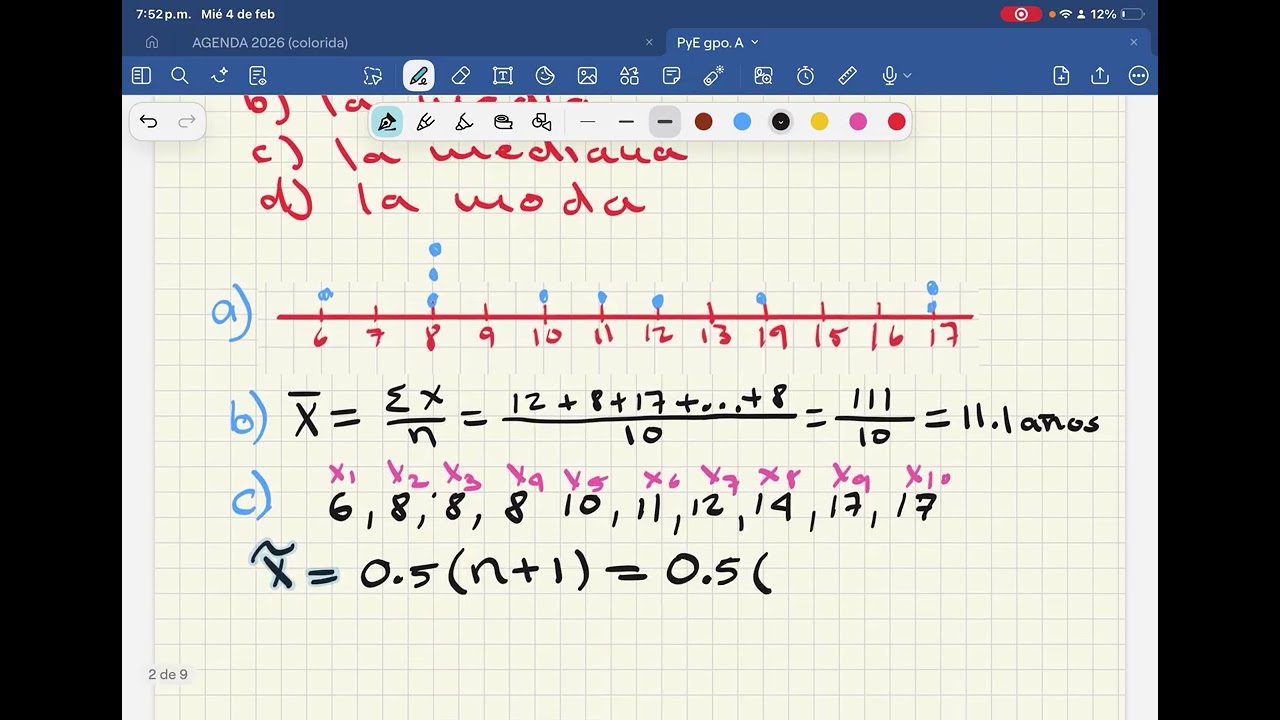 7:52 p.m. Mié 4 de feb
12%
AGENDA 2026 (colorida)
PyE gpo. A
b) la media
c) la mediana
d) la moda
a)
6 7 8 9 10 11 12 13 14 15 16 17
b) X̄ = Σx/n = 12 + 8 + 17 + ... + 8 / 10 = 111/10 = 11.1 años
x1 x2 x3 x4 x5 x6 x7 x8 x9 x10
c) 6, 8, 8, 8 10, 11, 12, 14, 17, 17
x̃ = 0.5(n+1) = 0.5(
2 de 9